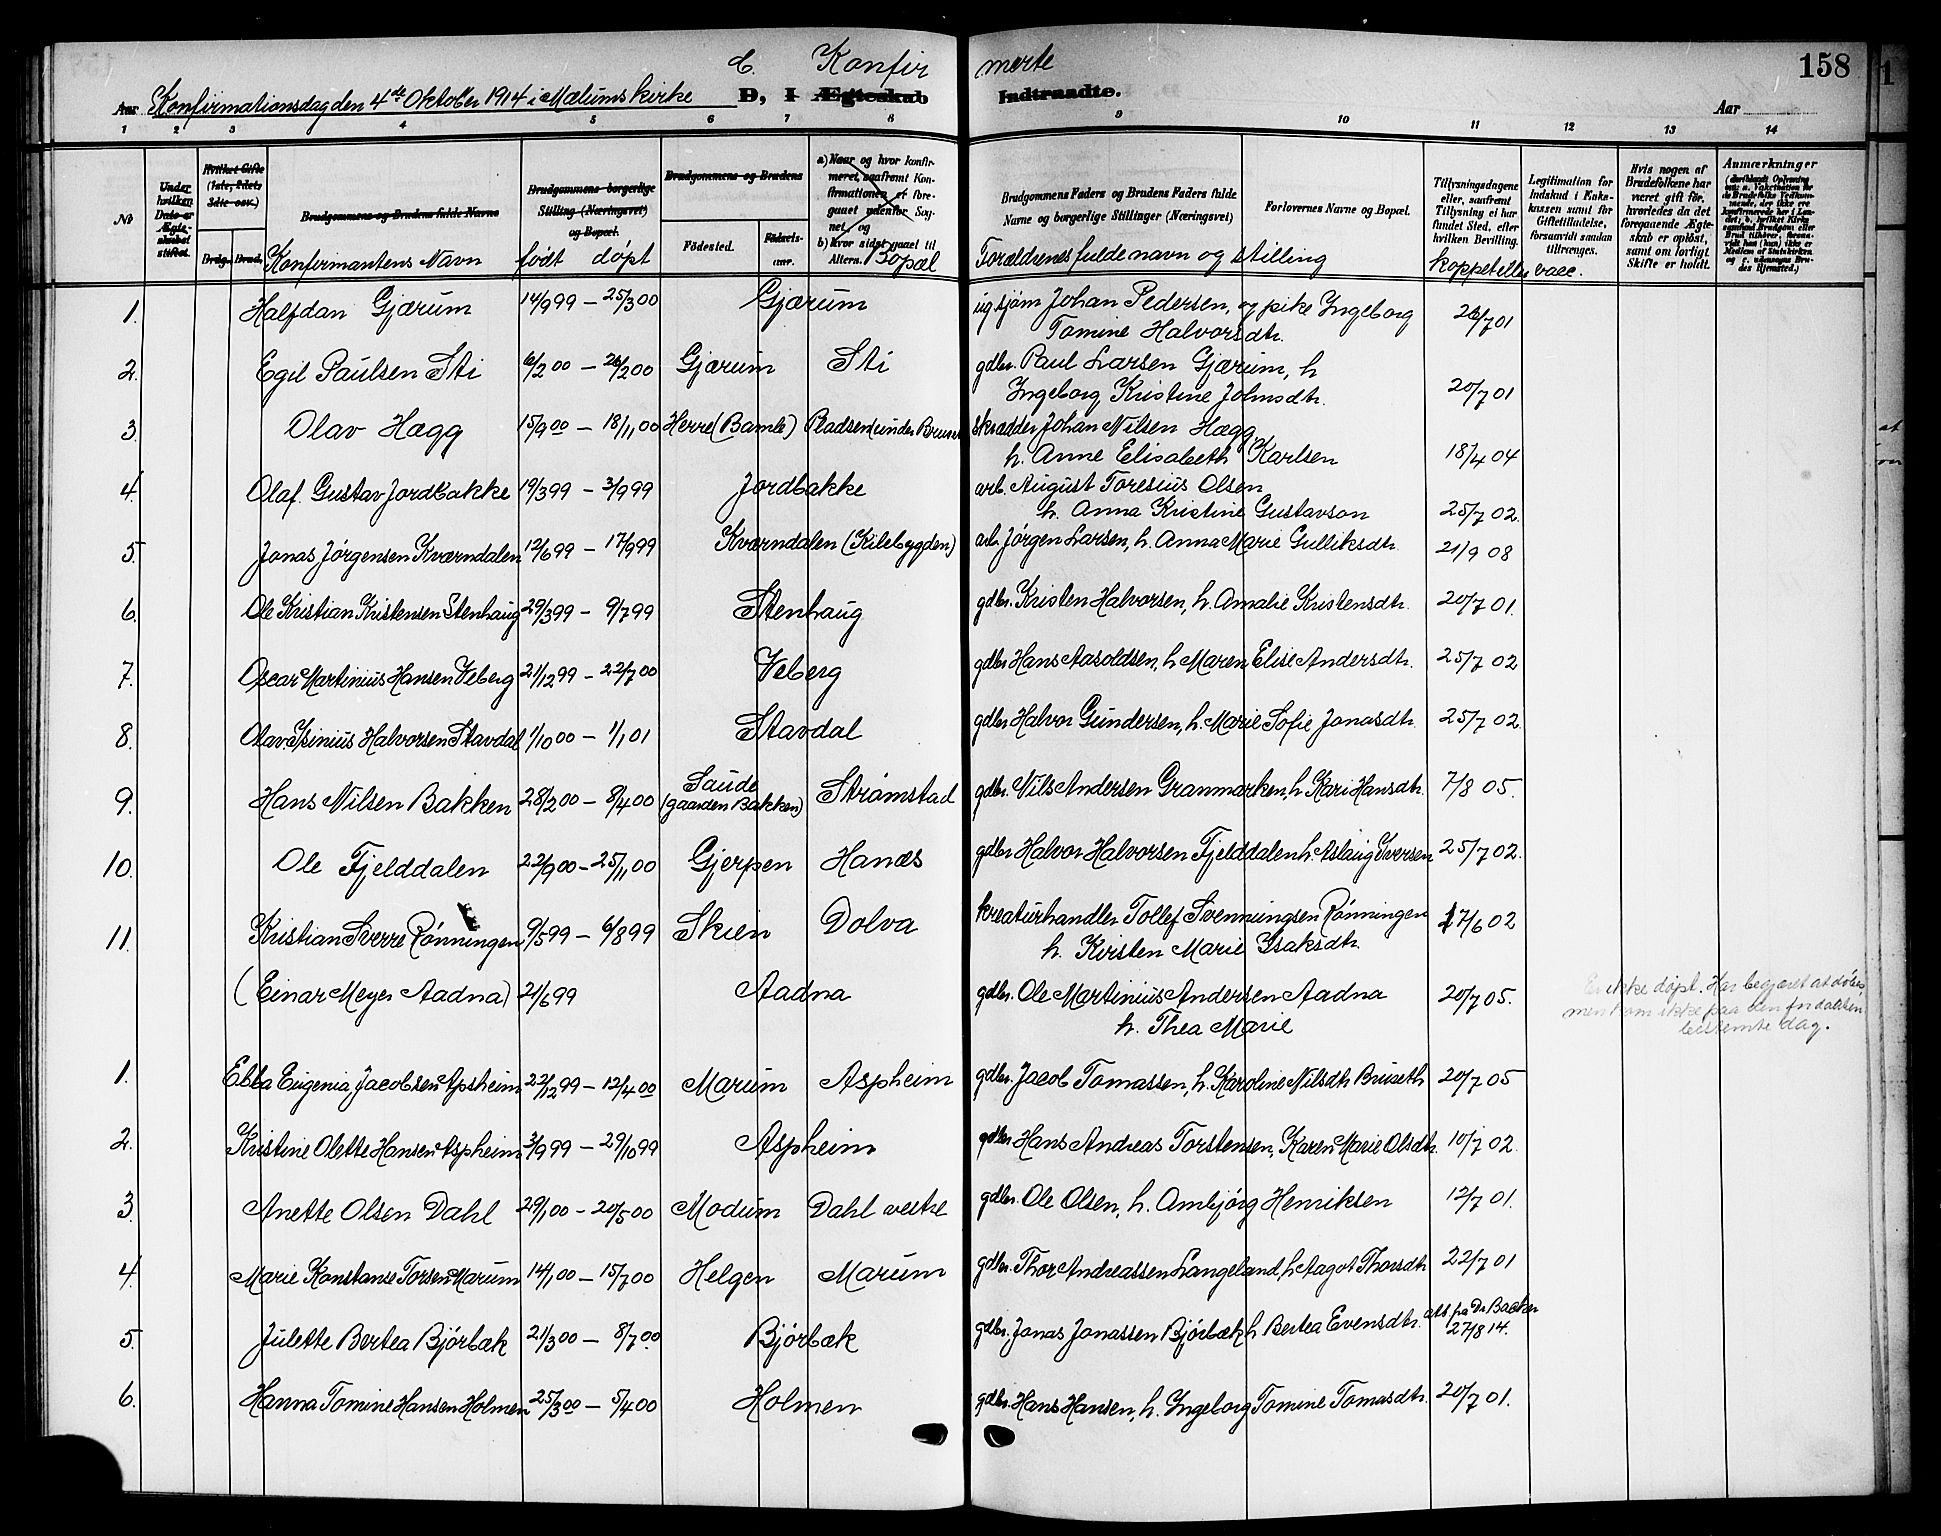 C. Konfir merte
158
Aar Konfirmationsdag den 4de Oktober 1914 i Mælums kirke D, I Ægteskab Indtraadte. Aar
1 2 3 4 5 6 7 8 9 10 11 12 13 14
No
Under hvilken Dato er Ægteskabet stiftet.
Hvilket Gifte (1ste, 2det, 3die osv.)
Brudg. Brud.
Brudgommens og Brudens fulde Navne
Konfirmantens Navn
Brudgommens borgerlige Stilling (Næringsvei) og Bopæl.
født døpt
Brudgommens og Brudens
Fødested. Fødselsaar.
a) Naar og hvor konfirmeret, saafremt Konfirmationen er foregaaet udenfor Sognet, og
b) hvor sidst gaaet til Altern.
Bopæl
Brudgommens Faders og Brudens Faders fulde Navne og borgerlige Stillinger (Næringsvei)
Forældrenes fulde navn og stilling
Forlovernes Navne og Bopæl.
Tillysningsdagene eller, saafremt Tillysning ei har fundet Sted, efter hvilken Bevilling.
koppet eller vacc.
Legitimation for Indskud i Enkekassen samt for Giftetilladelse, forsaavidt saadan tiltrenges.
Hvis nogen af Brudefolkene har været gift før, hvorledes da det foregaaende Ægteskab er opløst, samt om lovligt Skifte er holdt.
Anmærkninger
1. Halfdan Gjærum 14/9 99 – 25/3 00 Gjærum ug sjøm Johan Pedersen, og pike Ingeborg
Tomine Halvorsdtr. 26/7 01
2. Egil Paulsen Sti 6/2 00 – 26/2 00 Gjærum Sti gdbr. Paul Larsen Gjærum, h
Ingeborg Kristine Johnsdtr. 20/7 01
3. Olav Hægg 15/9 00 – 18/11 00 Herre (Bamle) Pladsen (under skrædder Johan Nilsen Hægg
h. Anne Elisabeth Karlsen 18/4 04
4. Olaf Gustav Jordbakke 19/3 99 – 3/9 99 Jordbakke arb. August Toresius Olsen
h. Anna Kristine Gustavson 25/7 02
5. Jonas Jørgensen Kværndalen 12/6 99 – 17/9 99 Kværndalen (Kilebygden) arb. Jørgen Larsen, h. Anna Marie Gulliksdtr. 21/9 08
6. Ole Kristian Kristensen Stenhaug 29/3 99 – 9/7 99 Stenhaug gdbr. Kristen Halvorsen, h. Amalie Kristensdtr. 20/7 01.
7. Oscar Martinius Hansen Veberg 21/12 99 – 22/7 00 Veberg gdbr Hans Aasoldsen, h Maren Elise Andersdtr. 25/7 02
8. Olav Halvorsen Stavdal 1/10 00 – 1/1 01 Stavdal gdbr Halvor Gundersen, h. Marie Sofie Jonasdtr. 25/7 02
9. Hans Nilsen Bakken 28/2 00 – 8/4 00 Saude (gaarden Bakken) Strømstad gdbr. Nils Andersen Granmarken, h Kari Hansdtr. 7/8 05.
10. Ole Fjelddalen 22/9 00 – 25/11 00 Gjerpen Hanæs gdbr Halvor Halvorsen Fjelddalen h. Aslaug Iversen 25/7 02.
11. Kristian Sverre Rønningen 9/5 99 – 6/8 99 Skien Dolva kreaturhandler Tollef Svennungsen Rønningen
h. Kirsten Marie Isaksdtr. 17/6 02
(Einar Meyer Aadna) 21/6 99 Aadna gdbr. Ole Martinius Andersen Aadna 20/7 05.
h. Thea Marie
Er ikke døpt. Har begjæret at døbes
men kom ikke paa den for daaben
bestemte dag.
1. Ebba Eugenia Jacobsen Apsheim 22/12 99 – 12/4 00 Marum Aspheim gdbr. Jacob Tomassen, h. Karoline Nilsdtr Bruseth 20/7 05
2. Kristine Olette Hansen Aspheim 3/9 99 – 29/10 99 Aspheim gdbr Hans Andreas Torstensen, Karen Marie Olsdtr. 10/7 02.
3. Anette Olsen Dahl 29/1 00 – 20/5 00 Modum Dahl vestre gdbr. Ole Olsen, h. Ambjørg Henriksen 12/7 01.
4. Marie Konstanse Torsen Marum 14/1 00 – 15/7 00 Helgen Marum gdbr. Thor Andreassen Langeland, h Aagot Thorsdtr 22/7 01
5. Julette Bertea Bjørbæk 21/3 00 – 8/7 00 Bjørbæk gdbr. Jonas Jonassen Bjørbæk h Bertea Evensdtr. att fra Dr Backer
27/8 14.
6. Hanna Tomine Hansen Holmen 25/3 00 – 5/4 00 Holmen gdbr. Hans Hansen, h. Ingeborg Tomine Tomasdtr. 20/7 01.